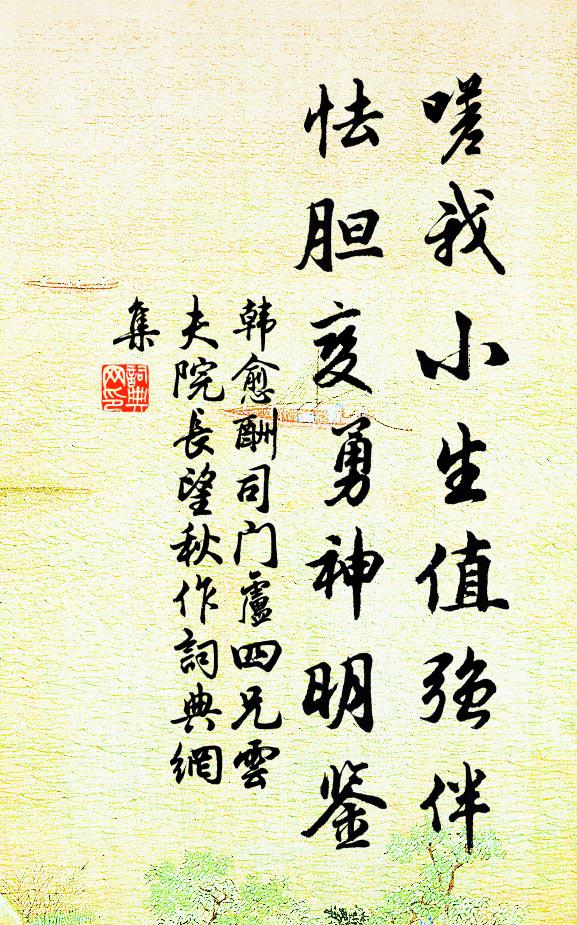 嗟我小生值强伴
怯胆变勇神明鉴
韩愈酬司门盧四兄雲
夫院长望秋作詞典網
集
詞典
网印